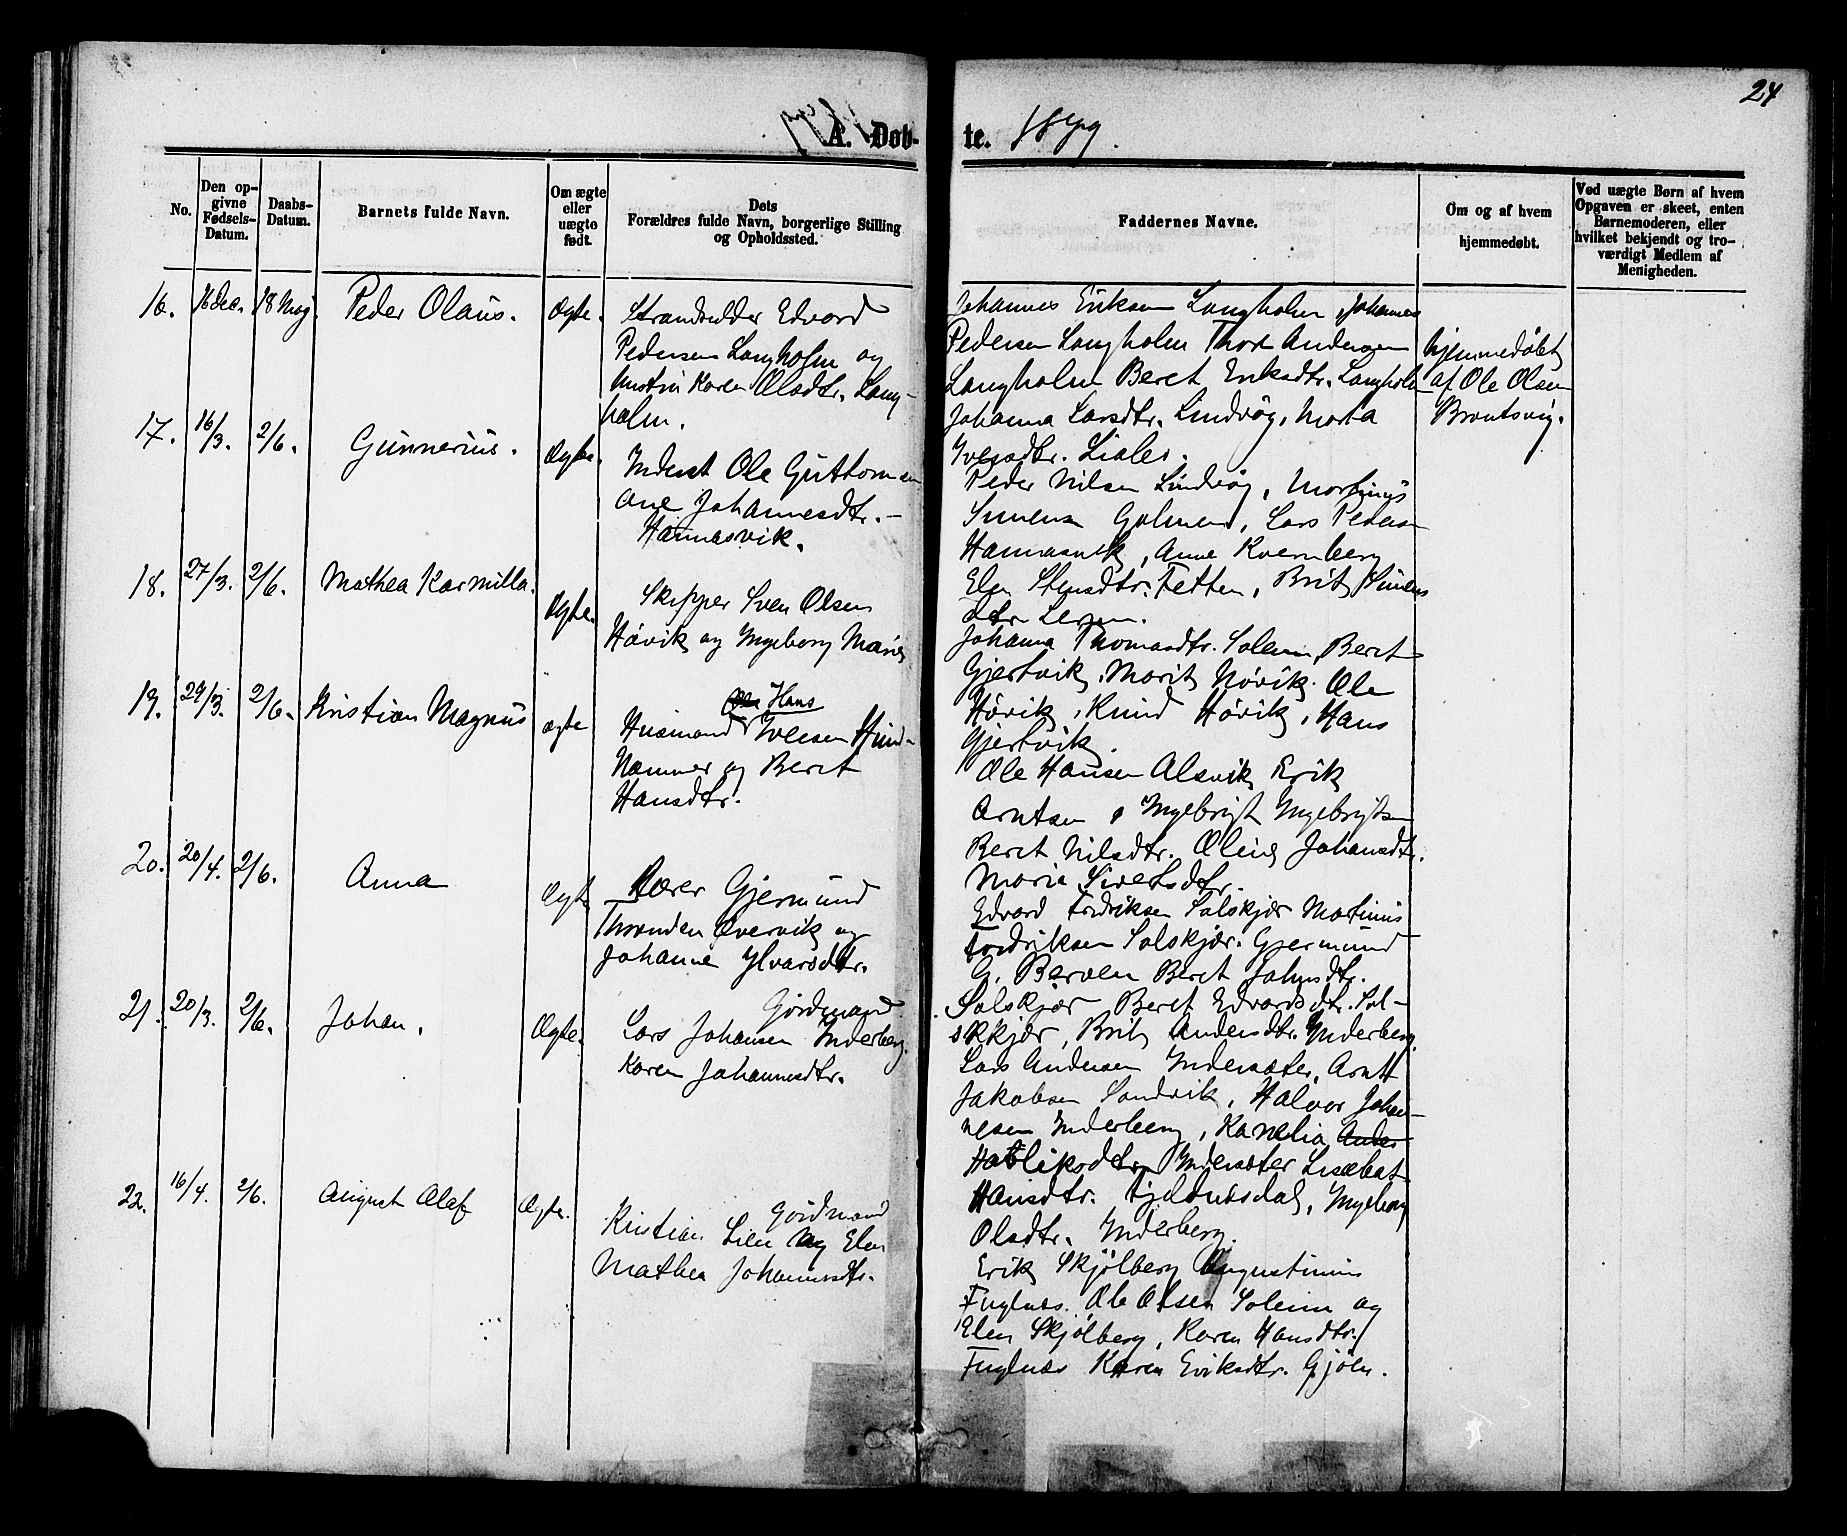 24
A. Døb-te. 1879.
No.
Den op-
givne
Fødsels-
Datum.
Daabs-
Datum.
Barnets fulde Navn.
Om ægte
eller
uægte
født.
Dets
Forældres fulde Navn, borgerlige Stilling
og Opholdssted.
Faddernes Navne.
Om og af hvem
hjemmedøbt.
Ved uægte Børn af hvem
Opgaven er skeet, enten
Barnemoderen, eller
hvilket bekjendt og tro-
værdigt Medlem af
Menigheden.
16. 16 Dec. 18 Maj Peder Olaus. Ægte.
Strandsidder Edvard
Pedersen Langholm og
Karen Olsdtr. Lang-
holm.
Johannes Eriksen Langholm, Johannes
Pedersen Langholm Thor Andersen
Langholm Beret Eriksdtr. Langholm
Johanna Larsdtr. Lindvåg, Marta
Iversdtr.
hjemmedøbt
af Ole Olsen
17. 16/3. 2/6. Gunnerius. Ægte.
Inderst Ole Guttormsen
Ane Johannesdtr. -
Hamnasvik.
Peder Nilsen Lindvåg, Martinus
Lars Peders
Hamnasvik, Anne Kvernberg
Elen Fetten, Brit Simens
dtr
18. 27/3. 2/6. Mathea Karmilla. Ægte.
Skipper Sven Olsen
Høvik og Ingeborg Marie
Johanna Thomasdtr. Solem, Beret
Gjertvik, Marit Høvik, Ole
Høvik, Knud Høvik, Hans
Gjertvik.
19. 29/3. 2/6. Kristian Magnus ægte
Ole Hans
Husmand Iversen Hund-
hammer og Beret
Hansdtr.
Ole Hansen Alsvik Erik
Arntsen, Ingebrigt Ingebrigtsen
Beret Nilsdtr. Oline Johansdtr.
Marie Sivertsdtr.
20. 20/4. 2/6. Anna Ægte
Gjermund
Thronden Ævervik og
Johanne Ylvarsdtr.
Edvard Fredriksen Solskjær Martinus
Fredriksen Solskjær. Gjermund
G. Berven Beret Johnsdtr.
Solskjær Beret Edvardsdtr. Sol-
skjær, Brit Andersdtr. Ynderberg.
21. 20/3. 2/6. Johan. Ægte.
Gårdmand
Lars Johansen Inderberg.
Karen Johannesdtr.
Lars Andersen Indersæter, Arnt
Jakobsen Sandvik, Halvor Johan-
nesen Inderberg, Kornelia Ander
Indersæter Lisebet
Hansdtr. Ingeborg
Olsdtr. Inderberg.
22. 16/4. 2/6. August Olaf Ægte.
Gårdmand
Kristian Lien og Elen
Mathea Johannesdtr.
Erik Skjølberg Augustinius
Fuglnæs. Ole Olsen Solem og
Elen Skjølberg, Karen Hansdtr.
Fuglnæs Karen Eriksdtr. Gjølen.